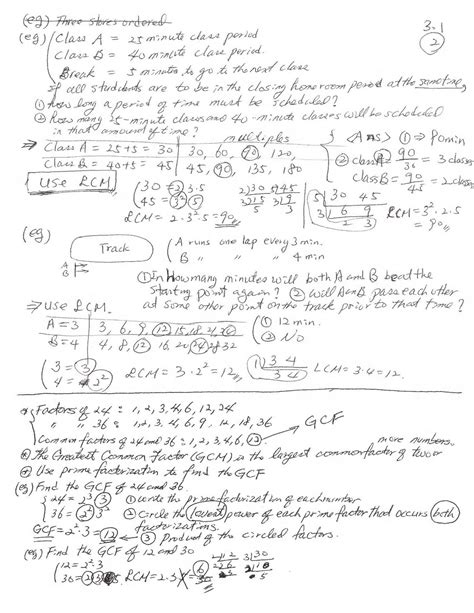 (eg) Three stores ordered
3.1
2
(eg) Class A = 25 minute class period
Class B = 40 minute class period.
Break = 5 minutes to go to the next class
If all studdents are to be in the closing home room period at the same time,
① How long a period of time must be scheduled?
② How many 25-minute classes and 40-minute classes will be scheduled
in that amount of time?
multiples
⇒ Class A = 25+5 = 30 | 30, 60, 90, 120,
Class B = 40+5 = 45 | 45, 90, 135, 180
<Ans> ① ⇒ 90 min
② class A = 90/ = 3 classes
class B = 90/45 = 2 classes
Use LCM
30 = 2·3·5
45 = 3²·5
LCM = 2·3²·5 = 90
2)30 3)45
3)15 3)15
5
5 | 30 45
3 | 6 9
2 3
LCM = 3²·2·5
= 90
(eg)
Track
A
B
A runs one lap every 3 min.
B 〃 〃 〃 4 min
① In how many minutes will both A and B be at the
starting point again? ② Will A and B pass each other
at some other point on the track prior to that time?
⇒ Use LCM.
A = 3 | 3, 6, 9, 12, 15, 18, 24,
B = 4 | 4, 8, 12, 16, 20, 24, 28 32
① 12 min.
② No
3 = 3
4 = 2²
LCM = 3·2² = 12
1 | 3 4
3 4
LCM = 3·4 = 12.
Factors of 24 = 1, 2, 3, 4, 6, 12, 24
〃 〃 36 = 1, 2, 3, 4, 6, 9, 12, 18, 36
Common factors of 24 and 36 = 1, 2, 3, 4, 6, 12
GCF
more numbers.
The Greatest Common Factor (GCM) is the largest common factor of two or
Use prime factorization to find the GCF
(eg) Find the GCF of 24 and 36.
24 = 2³·3
36 = 2²·3²
GCF = 2²·3 = 12
① Write the prime factorization of each number
② Circle the lowest power of each prime factor that occurs both
factorizations.
③ Product of the circled factors.
(eg) Find the GCF of 12 and 30
12 = 2²·3
LCM = 2·3
6
2)12 3)30
2)6
5